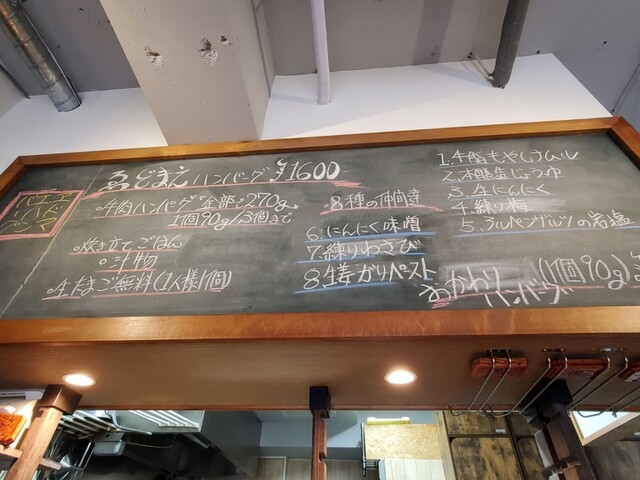 ゑびすまえ ハンバーグ ¥1600
○牛肉ハンバーグ 全部で270g
1個90g/3個まで
○炊き立てごはん
○汁物
○生たまご無料(1人様1個)
8種の仲間達
1.牛脂もやしナムル
2.木樽生じょうゆ
3.生にんにく
4.練り梅
5.アルペンザルツの岩塩
6.にんにく味噌
7.練りわさび
8.生姜ガリペースト
おかわり ハンバーグ (1個90g)